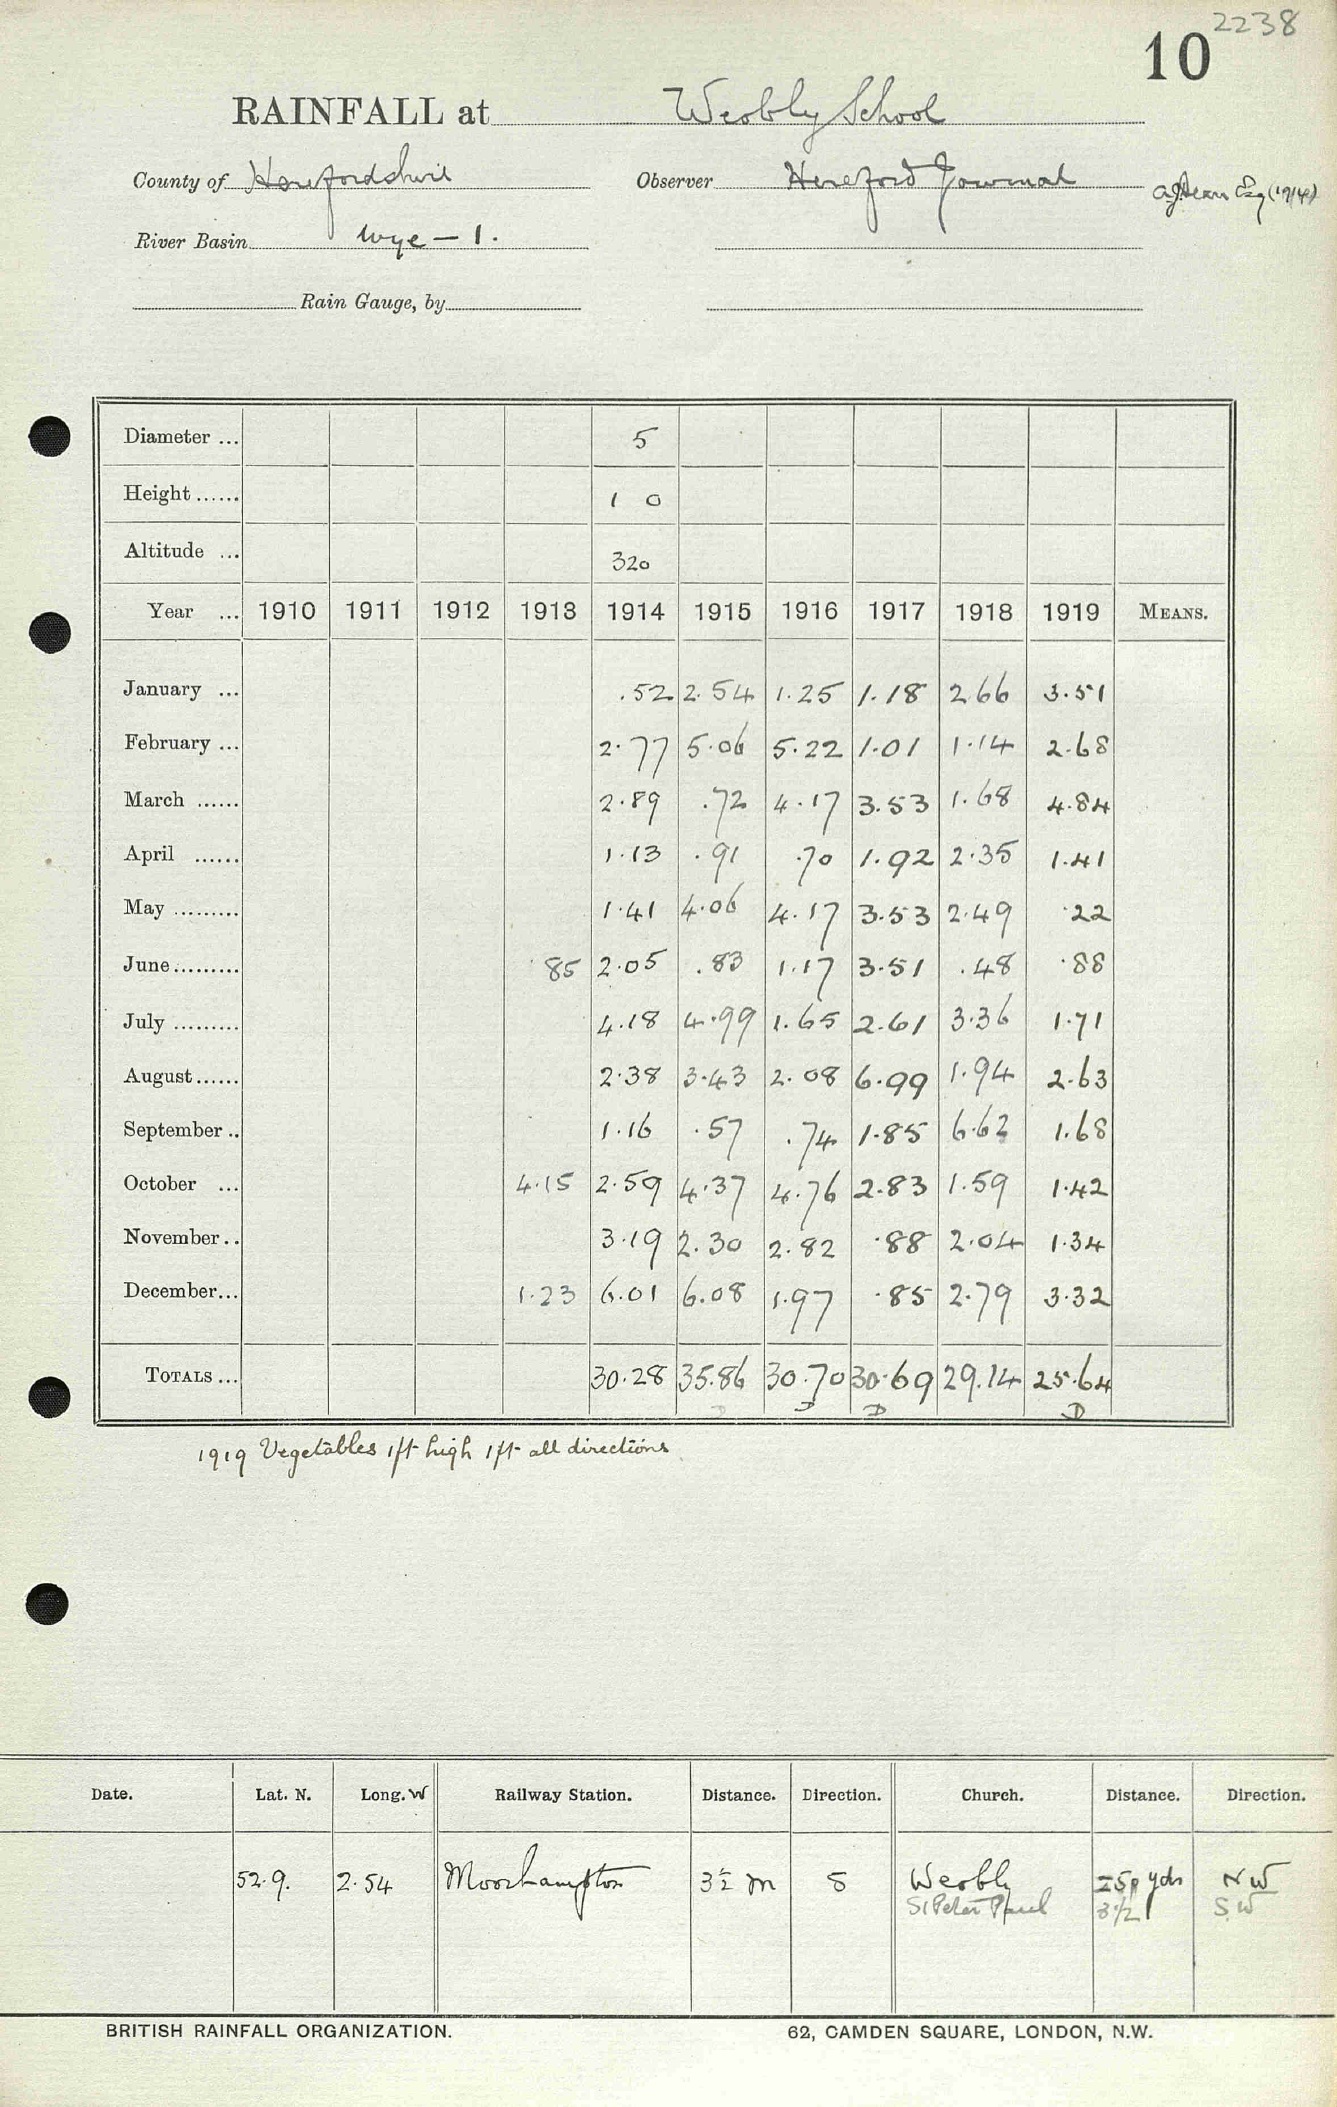 2238
10
RAINFALL at Weobly School
County of Herefordshire Observer Hereford Journal Esq (1914)
River Basin Wye — 1.
Rain Gauge, by
Diameter ... 5
Height ...... 1 0
Altitude ... 320
Year ... 1910 1911 1912 1913 1914 1915 1916 1917 1918 1919 MEANS.
January ... .52 2.54 1.25 1.18 2.66 3.51
February ... 2.77 5.06 5.22 1.01 1.14 2.68
March ...... 2.89 .72 4.17 3.53 1.68 4.84
April ...... 1.13 .91 .70 1.92 2.35 1.41
May ......... 1.41 4.06 4.17 3.53 2.49 .22
June ......... .85 2.05 .83 1.17 3.51 .48 .88
July ......... 4.18 4.99 1.65 2.61 3.36 1.71
August ...... 2.38 3.43 2.08 6.99 1.94 2.63
September .. 1.16 .57 .74 1.85 6.62 1.68
October ... 4.15 2.59 4.37 4.76 2.83 1.59 1.42
November .. 3.19 2.30 2.82 .88 2.04 1.34
December... 1.23 6.01 6.08 1.97 .85 2.79 3.32
TOTALS ... 30.28 35.86 30.70 30.69 29.14 25.64
D D D D
1919 Vegetables 1ft high 1ft all directions
Date. Lat. N. Long. W Railway Station. Distance. Direction. Church. Distance. Direction.
52.9. 2.54 Moorhampton 3½ m S Weobly yds NW
St Peter Paul 3½ SW
BRITISH RAINFALL ORGANIZATION. 62, CAMDEN SQUARE, LONDON, N.W.